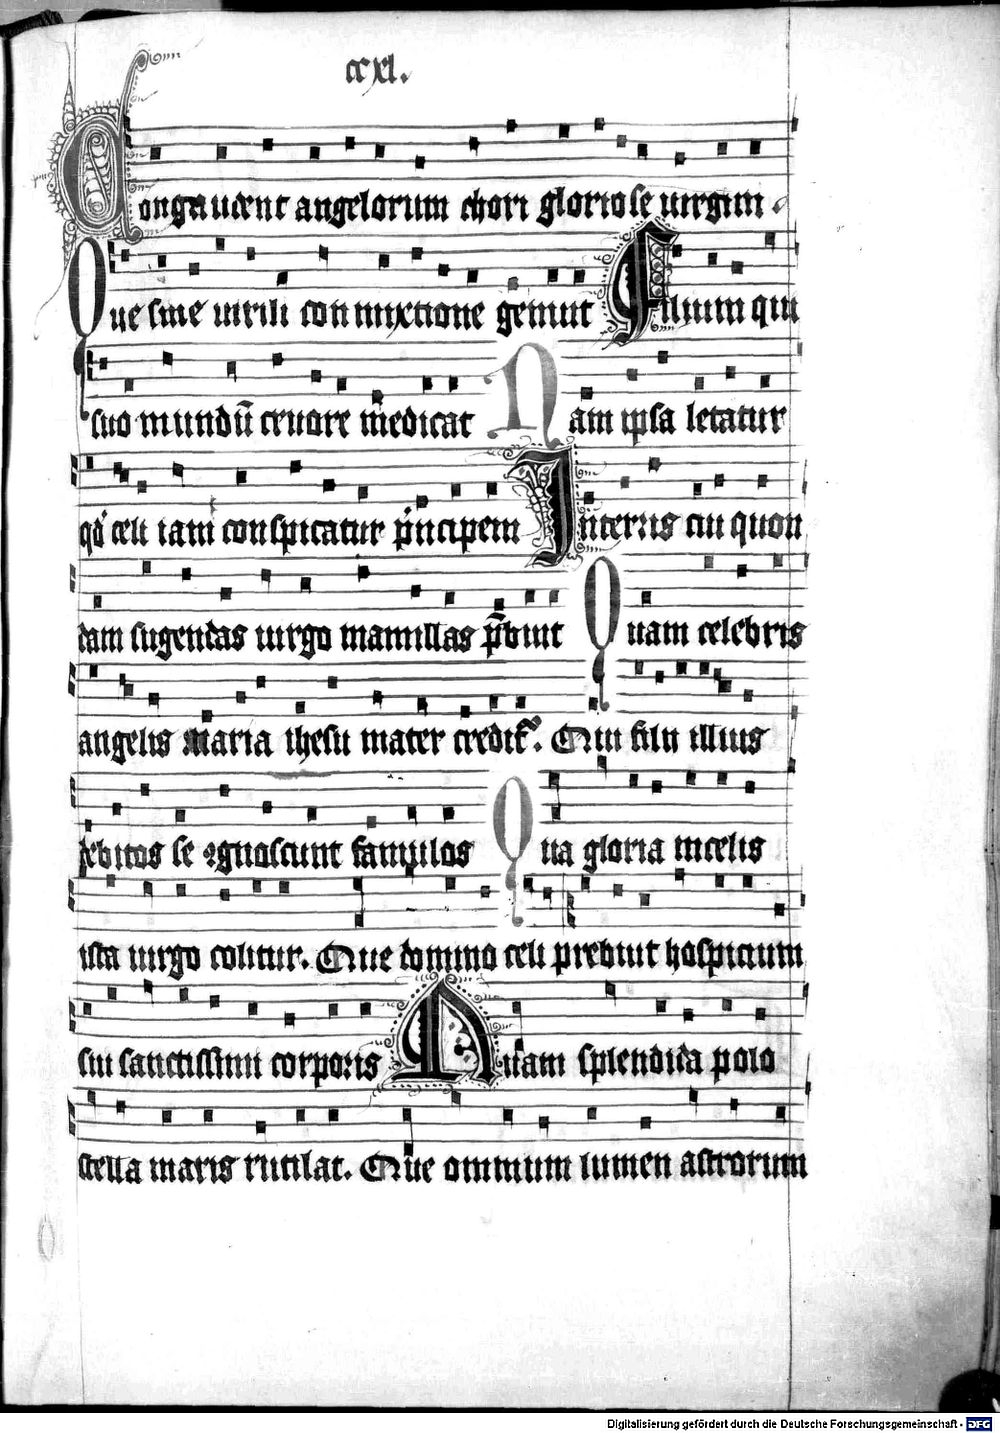 ccxl.
Congaudent angelorum chori gloriose uirgini.
Que sine uirili conmixtione genuit Filium qui
suo mundū cruore medicat Nam ipsa letatur
qd celi iam conspicatur p̄ncipem In terris cui quon
dam sugendas uirgo mamillas p̄buit Quam celebris
angelis maria ihesu mater credit᷑. Qui filii illius
debitos se ꝯgnoscunt famulos Qua gloria in celis
ista uirgo colitur. Que domino celi prebuit hospicium
sui sanctissimi corporis Quam splendida polo
stella maris rutilat. Que omnium lumen astrorum
Digitalisierung gefördert durch die Deutsche Forschungsgemeinschaft - DFG